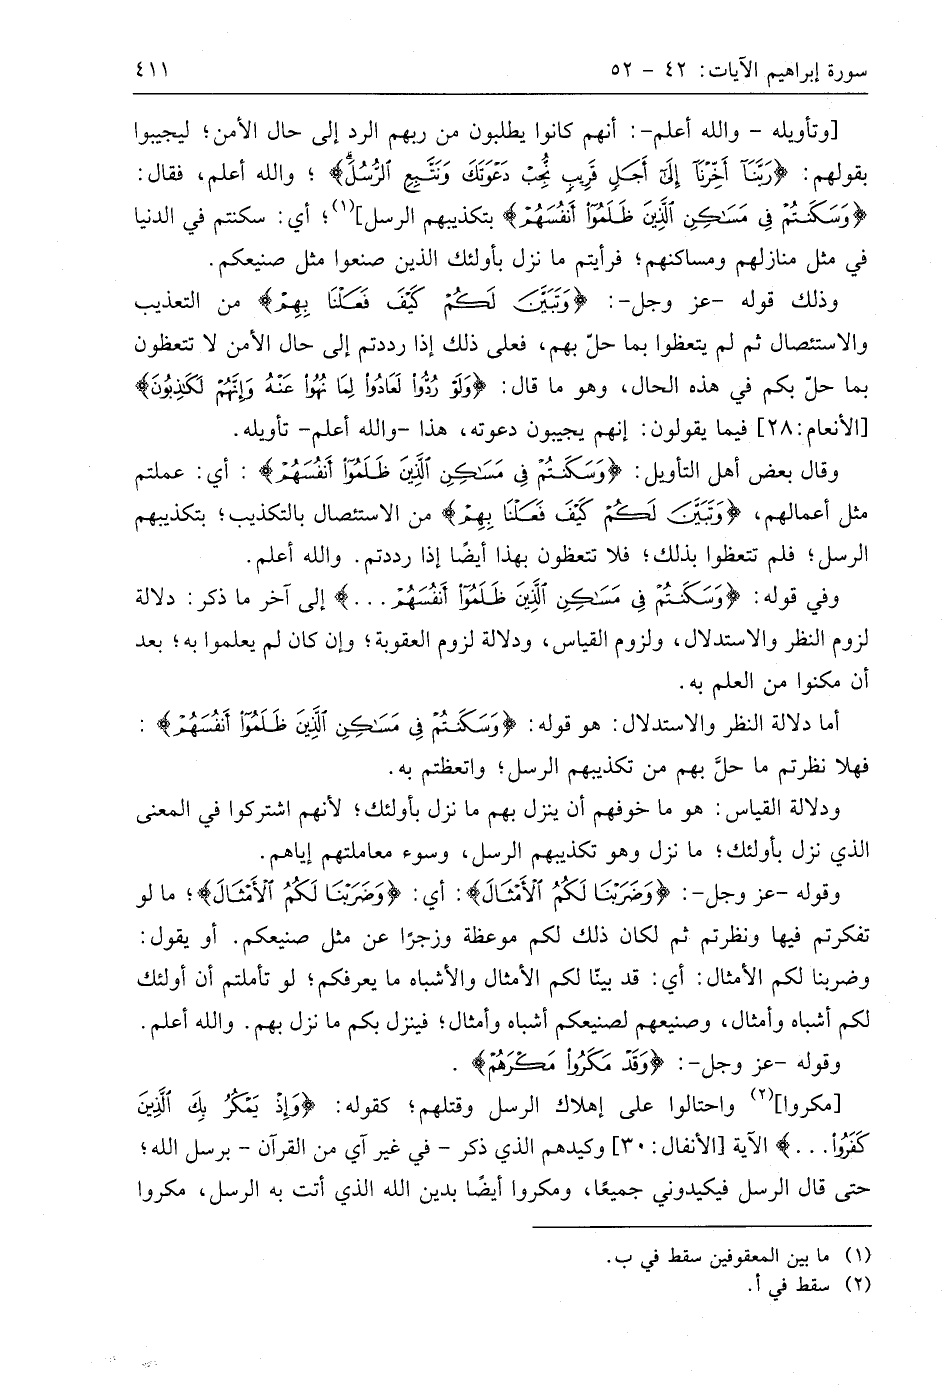 سورة إبراهيم الآيات: ٤٢ - ٥٢ ٤١١
[وتأويله - والله أعلم-: أنهم كانوا يطلبون من ربهم الرد إلى حال الأمن؛ ليجيبوا
بقولهم: ﴿رَبَّنَآ أَخِّرْنَآ إِلَىٰٓ أَجَلٍ قَرِيبٍ نُّجِبْ دَعْوَتَكَ وَنَتَّبِعِ ٱلرُّسُلَۗ﴾ ؛ والله أعلم، فقال:
﴿وَسَكَنتُمْ فِى مَسَـٰكِنِ ٱلَّذِينَ ظَلَمُوٓا۟ أَنفُسَهُمْ﴾ بتكذيبهم الرسل](١)؛ أي: سكنتم في الدنيا
في مثل منازلهم ومساكنهم؛ فرأيتم ما نزل بأولئك الذين صنعوا مثل صنيعكم.
وذلك قوله -عز وجل-: ﴿وَتَبَيَّنَ لَكُمْ كَيْفَ فَعَلْنَا بِهِمْ﴾ من التعذيب
والاستئصال ثم لم يتعظوا بما حلّ بهم، فعلى ذلك إذا رددتم إلى حال الأمن لا تتعظون
بما حلّ بكم في هذه الحال، وهو ما قال: ﴿وَلَوْ رُدُّوا۟ لَعَادُوا۟ لِمَا نُهُوا۟ عَنْهُ وَإِنَّهُمْ لَكَـٰذِبُونَ﴾
[الأنعام:٢٨] فيما يقولون: إنهم يجيبون دعوته، هذا -والله أعلم- تأويله.
وقال بعض أهل التأويل: ﴿وَسَكَنتُمْ فِى مَسَـٰكِنِ ٱلَّذِينَ ظَلَمُوٓا۟ أَنفُسَهُمْ﴾ : أي: عملتم
مثل أعمالهم، ﴿وَتَبَيَّنَ لَكُمْ كَيْفَ فَعَلْنَا بِهِمْ﴾ من الاستئصال بالتكذيب؛ بتكذيبهم
الرسل؛ فلم تتعظوا بذلك؛ فلا تتعظون بهذا أيضًا إذا رددتم. والله أعلم.
وفي قوله: ﴿وَسَكَنتُمْ فِى مَسَـٰكِنِ ٱلَّذِينَ ظَلَمُوٓا۟ أَنفُسَهُمْ...﴾ إلى آخر ما ذكر: دلالة
لزوم النظر والاستدلال، ولزوم القياس، ودلالة لزوم العقوبة؛ وإن كان لم يعلموا به؛ بعد
أن مكنوا من العلم به.
أما دلالة النظر والاستدلال: هو قوله: ﴿وَسَكَنتُمْ فِى مَسَـٰكِنِ ٱلَّذِينَ ظَلَمُوٓا۟ أَنفُسَهُمْ﴾ :
فهلا نظرتم ما حلَّ بهم من تكذيبهم الرسل؛ واتعظتم به.
ودلالة القياس: هو ما خوفهم أن ينزل بهم ما نزل بأولئك؛ لأنهم اشتركوا في المعنى
الذي نزل بأولئك؛ ما نزل وهو تكذيبهم الرسل، وسوء معاملتهم إياهم.
وقوله -عز وجل-: ﴿وَضَرَبْنَا لَكُمُ ٱلْأَمْثَالَ﴾: أي: ﴿وَضَرَبْنَا لَكُمُ ٱلْأَمْثَالَ﴾؛ ما لو
تفكرتم فيها ونظرتم ثم لكان ذلك لكم موعظة وزجرًا عن مثل صنيعكم. أو يقول:
وضربنا لكم الأمثال: أي: قد بينّا لكم الأمثال والأشباه ما يعرفكم؛ لو تأملتم أن أولئك
لكم أشباه وأمثال، وصنيعهم لصنيعكم أشباه وأمثال؛ فينزل بكم ما نزل بهم. والله أعلم.
وقوله -عز وجل-: ﴿وَقَدْ مَكَرُوا۟ مَكْرَهُمْ﴾ .
[مكروا](٢) واحتالوا على إهلاك الرسل وقتلهم؛ كقوله: ﴿وَإِذْ يَمْكُرُ بِكَ ٱلَّذِينَ
كَفَرُوا۟...﴾ الآية [الأنفال:٣٠] وكيدهم الذي ذكر - في غير آي من القرآن - برسل الله؛
حتى قال الرسل فيكيدوني جميعًا، ومكروا أيضًا بدين الله الذي أتت به الرسل، مكروا
(١) ما بين المعقوفين سقط في ب.
(٢) سقط في أ.